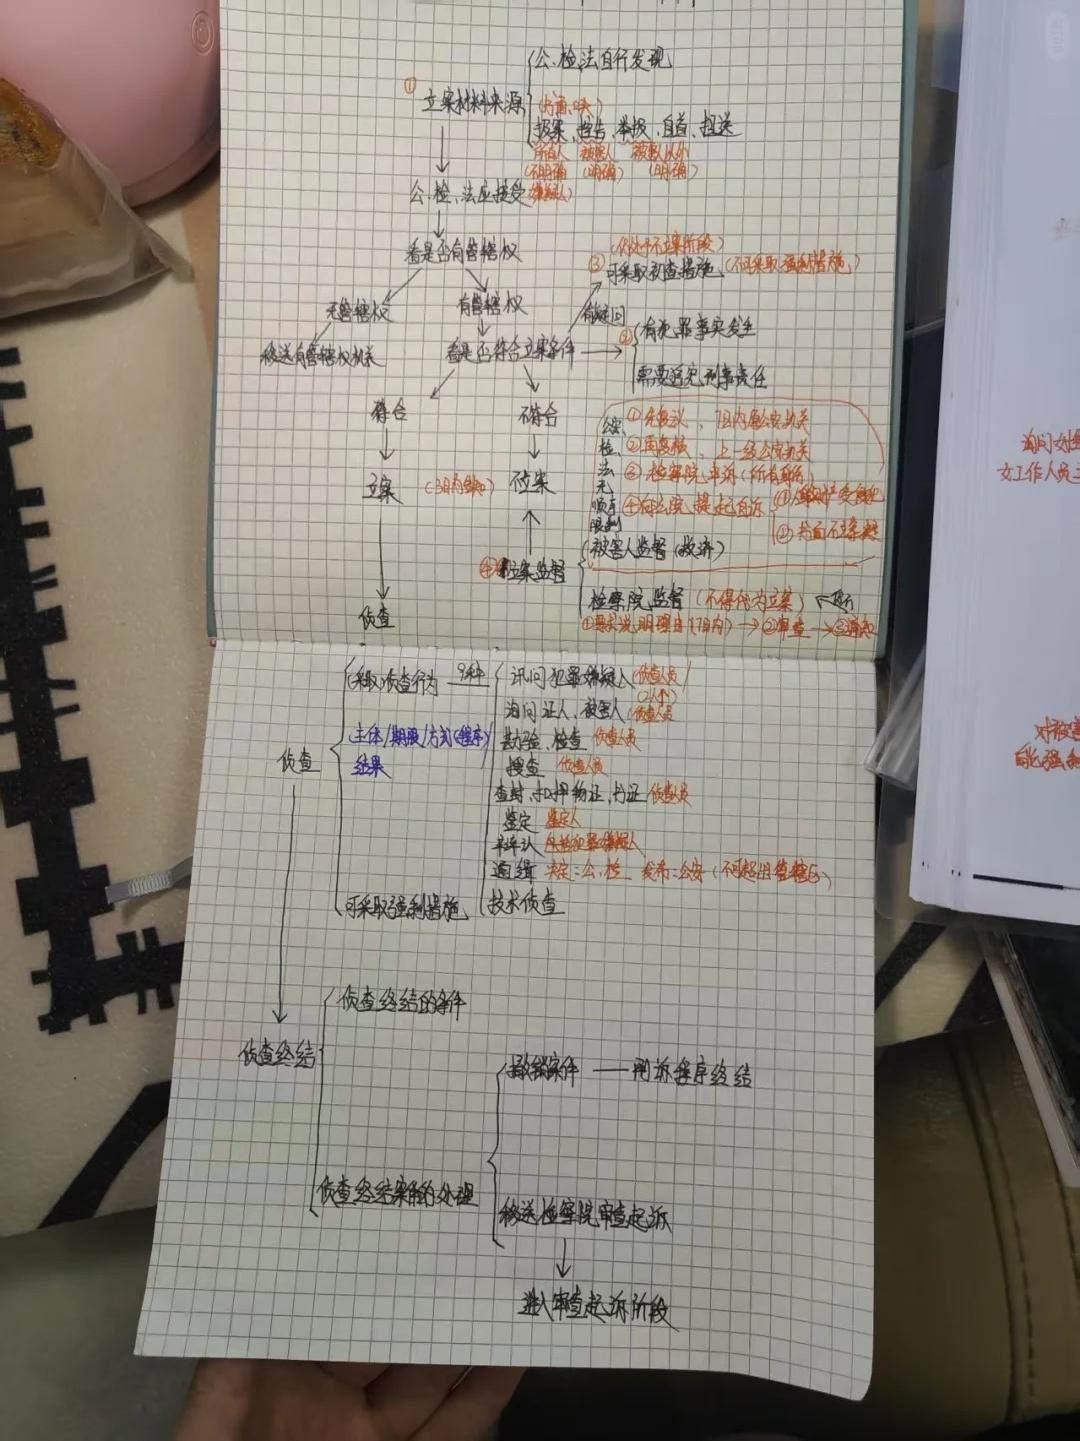 公、检、法自行发现
① 立案材料来源 (书面、口头)
报案、控告、举报、自首、扭送
所有人 被害人 被害人以外
(不明确 (明确) (明确)
嫌疑人)
公、检、法应接受
看是否有管辖权
(仍处于不立案阶段)
③ 可采取初查措施 (不可采取强制措施)
无管辖权 有管辖权
移送有管辖权机关 看是否符合立案条件
② 有犯罪事实发生
需要追究刑事责任
符合 不符合
立案
公安、检、法无顺序限制
① 先复议、7日内原公安机关
② 再复核、上一级公安机关
③ 检察院申诉
④ 向法院提起自诉
被害人监督(救济)
④ 立案监督
检察院监督 (不得代为立案)
①要求说明理由(7日内)→②审查→③通知
侦查
(采取)侦查行为 9种
讯问犯罪嫌疑人 (侦查人员)
(2人↑)
询问证人、被害人 侦查人员
主体/期限/方式(程序)
结果
侦查
勘验、检查 侦查人员
搜查 侦查人员
查封、扣押物证、书证 侦查人员
鉴定 鉴定人
辨认
通缉 决定:公、检 发布:公安(不可超出管辖区)
可采取强制措施
技术侦查
侦查终结的条件
侦查终结
撤销案件——刑诉程序终结
侦查终结案件的处理
移送检察院审查起诉
进入审查起诉阶段
询问女
女工作人员
对被害